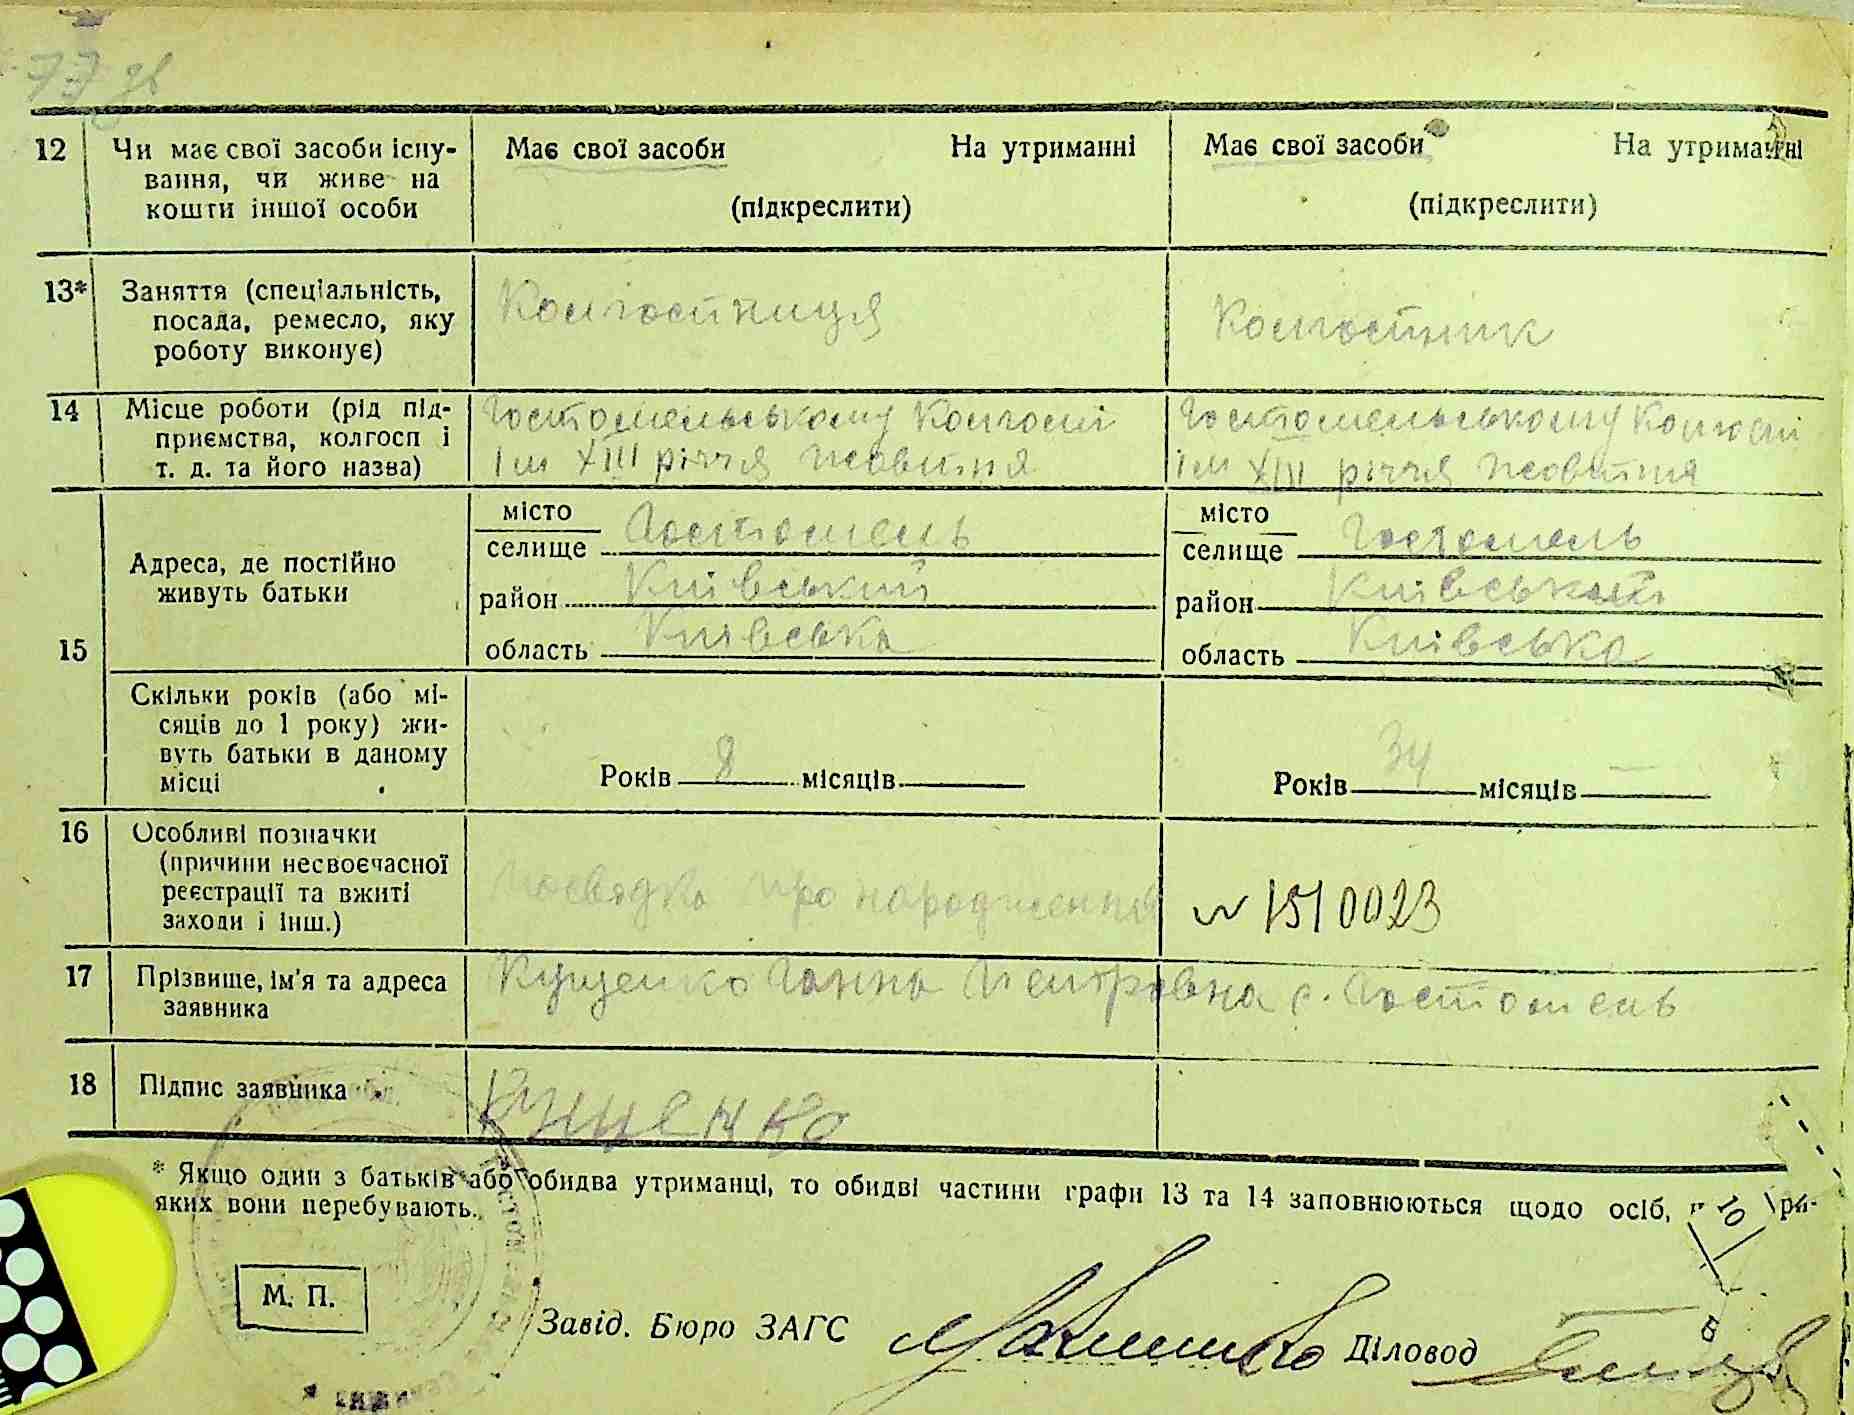 77 зв
12 Чи має свої засоби існу- Має свої засоби На утриманні Має свої засоби На утриманні
вання, чи живе на
кошти іншої особи (підкреслити) (підкреслити)
13* Заняття (спеціальність, Колгоспниця Колгоспник
посада, ремесло, яку
роботу виконує)
14 Місце роботи (рід під- Гостомельському Колгоспі Гостомельському Колгоспі
приємства, колгосп і ім XIII річчя Жовтня ім XIII річчя Жовтня
т. д. та його назва)
місто місто
селище Гостомель селище Гостомель
Адреса, де постійно
живуть батьки район Київський район Київський
15 область Київська область Київська
Скільки років (або мі-
сяців до 1 року) жи-
вуть батьки в даному
місці Років 8 місяців Років 34 місяців —
16 Особливі позначки
(причини несвоєчасної
реєстрації та вжиті Посвідка про народження № 1510023
заходи і інш.)
17 Прізвище, ім'я та адреса Куценко Ганна Петрівна с. Гостомель
заявника
18 Підпис заявника Куценко
* Якщо один з батьків або обидва утриманці, то обидві частини графи 13 та 14 заповнюються щодо осіб,
яких вони перебувають.
М. П.
Завід. Бюро ЗАГС Діловод
10